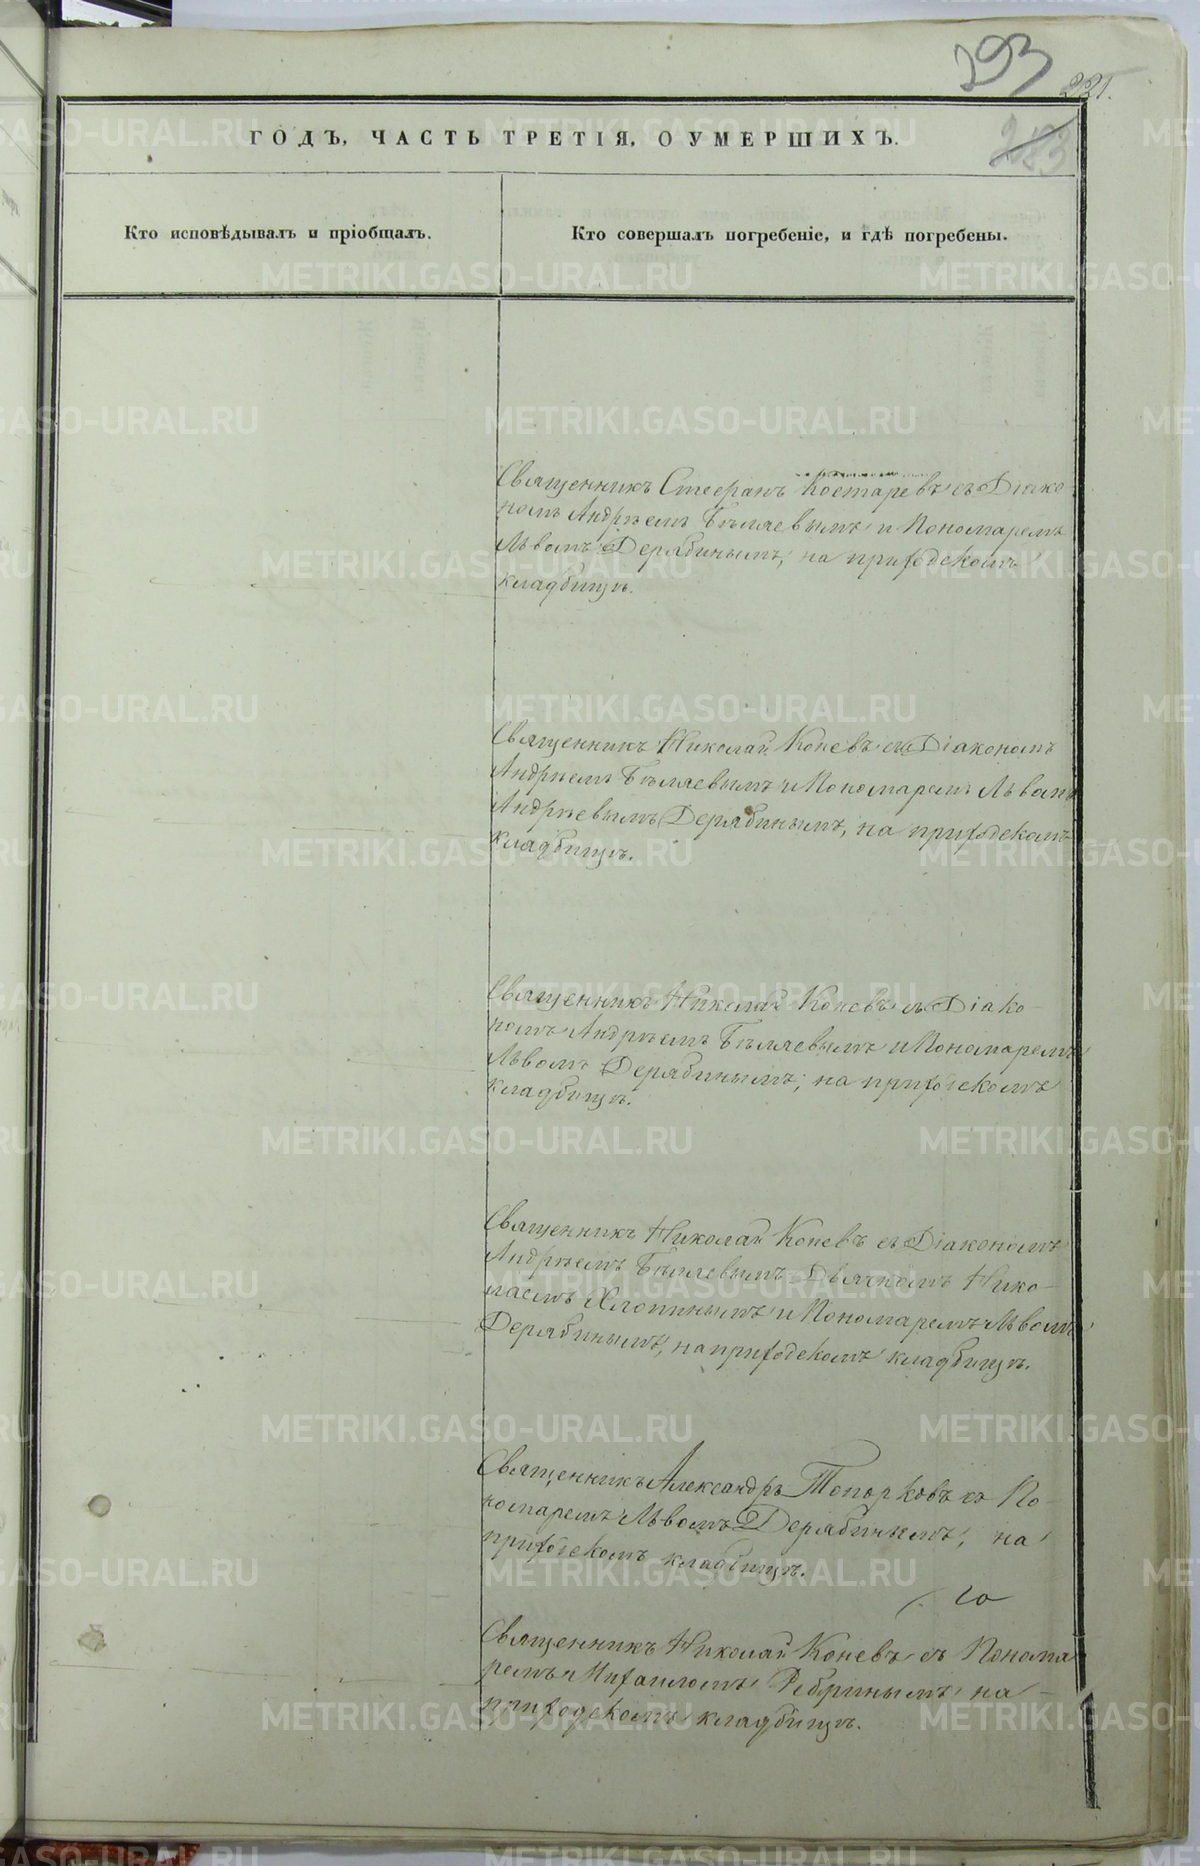 293
221.
283
ГОДЪ, ЧАСТЬ ТРЕТІЯ, О УМЕРШИХЪ.
Кто исповѣдывалъ и пріобщалъ.
Кто совершалъ погребеніе, и гдѣ погребены.
Священникъ Стефанъ Костаревъ съ Діако
номъ Андрѣемъ Бѣляевымъ и Пономаремъ
Львомъ Дерябинымъ, на приходскомъ
кладбищѣ.
Священникъ Николай Коневъ съ Діакономъ
Андрѣемъ Бѣляевымъ и Пономаремъ Львомъ
Андрѣевымъ Дерябинымъ, на приходскомъ
кладбищѣ.
Священникъ Николай Коневъ съ Діако-
номъ Андрѣемъ Бѣляевымъ и Пономаремъ
Львомъ Дерябинымъ, на приходскомъ
кладбищѣ.
Священникъ Николай Коневъ съ Діакономъ
Андрѣемъ Бѣляевымъ Дьячкомъ Нико-
лаемъ Хлопинымъ и Пономаремъ Львомъ
Дерябинымъ, на приходскомъ кладбищѣ.
Священникъ Александръ Топорковъ съ По-
номаремъ Львомъ Дерябинымъ, на
приходскомъ кладбищѣ.
Священникъ Николай Коневъ съ Понома
ремъ Михаиломъ Ребринымъ на-
приходскомъ кладбищѣ.
METRIKI.GASO-URAL.RU